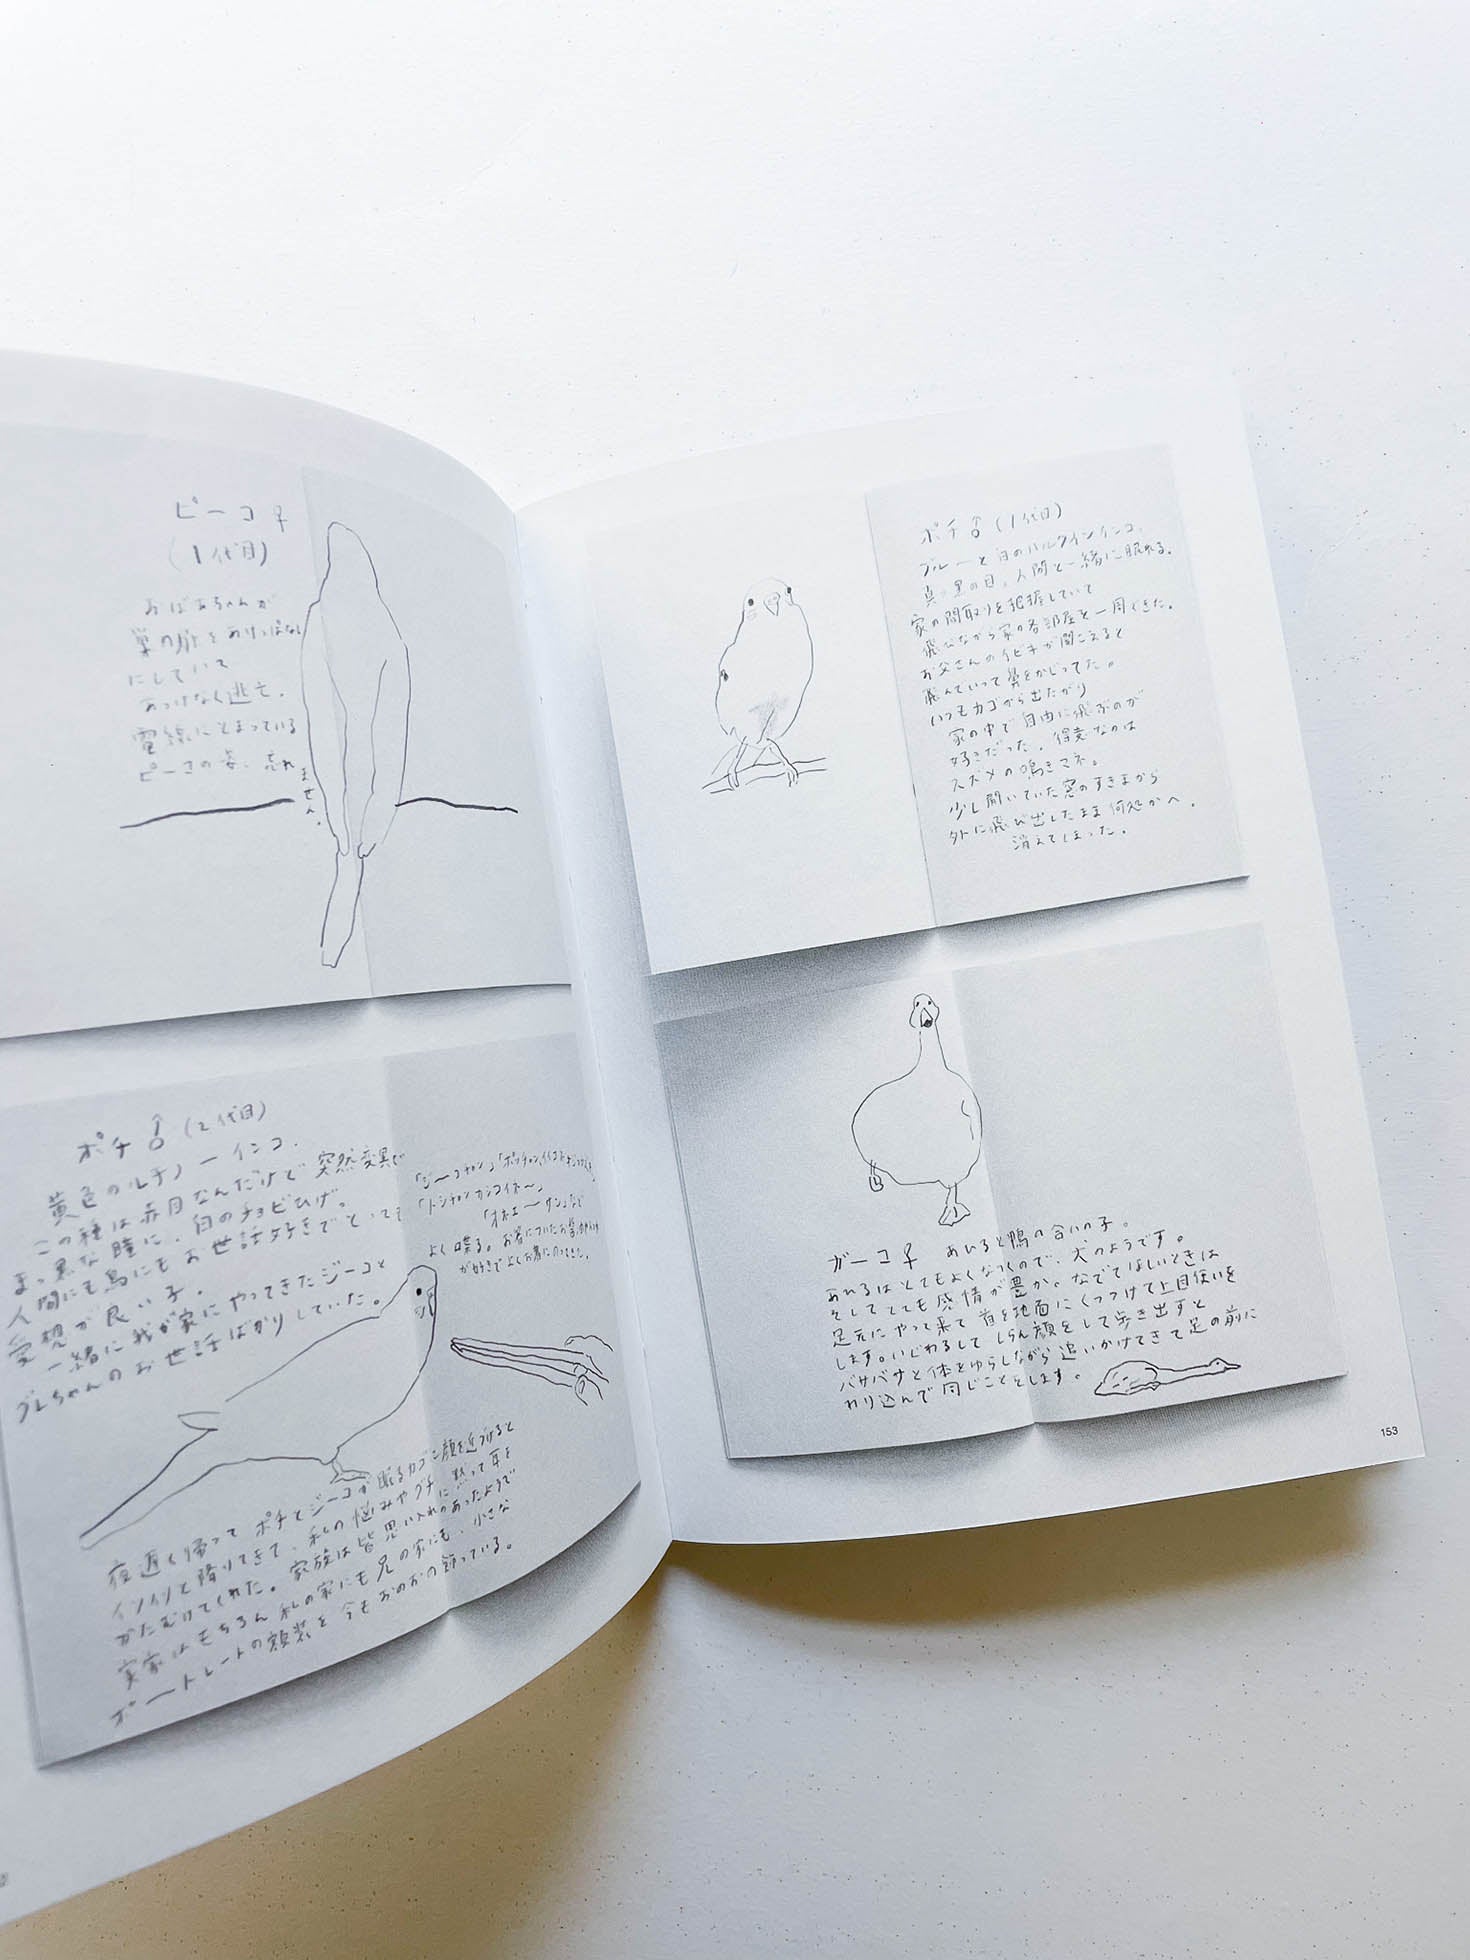 ピーコ♀
(1代目)
おばあちゃんが
巣の扉をあけっぱなし
にしていて
あっけなく逃亡。
電線にとまっている
ピーコの姿、忘れ
ません。
ポチ♂(2代目)
黄色のルチノーインコ.
この種は赤目なんだけど突然変異で
まっ黒な瞳に、白のチョビひげ。
人間にも鳥にもお世話好きでとっても
愛想が良い子.
一緒に我が家にやってきたジーコと
ブレちゃんのお世話ばかりしていた。
「オネエーサン」など
よく喋る。お箸についたお
が好きでよくお箸にのってきた。
夜遅く帰って ポチとジーコが眠るカゴに顔を近づけると
イソイソと降りてきて、私の悩みやグチに黙って耳を
かたむけてくれた。家族は皆思い入れのあったようで
実家はもちろん私の家にも兄の家にも、小さな
ポートレートの額装を今もおのおの飾っている。
ポチ♂(1代目)
ブルーと白のハルクインインコ.
真っ黒の目。人間と一緒に眠れる.
家の間取りを把握していて
飛びながら家の各部屋を一周できた.
お父さんのイビキが聞こえると
飛んでいって鼻をかじってた。
いつもカゴから出たがり
家の中で自由に飛ぶのが
好きだった. 得意なのは
スズメの鳴きマネ。
少し開いていた窓のすきまから
外に飛び出したまま何処かへ.
消えてしまった.
ガーコ♀ あひると鴨の合いの子。
あひるはとてもよくなつくので、犬のようです。
そしてとても感情が豊か。なでてほしいときは
足元にやって来て首を地面にくっつけて上目使いを
します。いじわるして しらん顔をして歩き出すと
バサバサと体をゆらしながら追いかけてきて足の前に
わり込んで同じことをします。
153